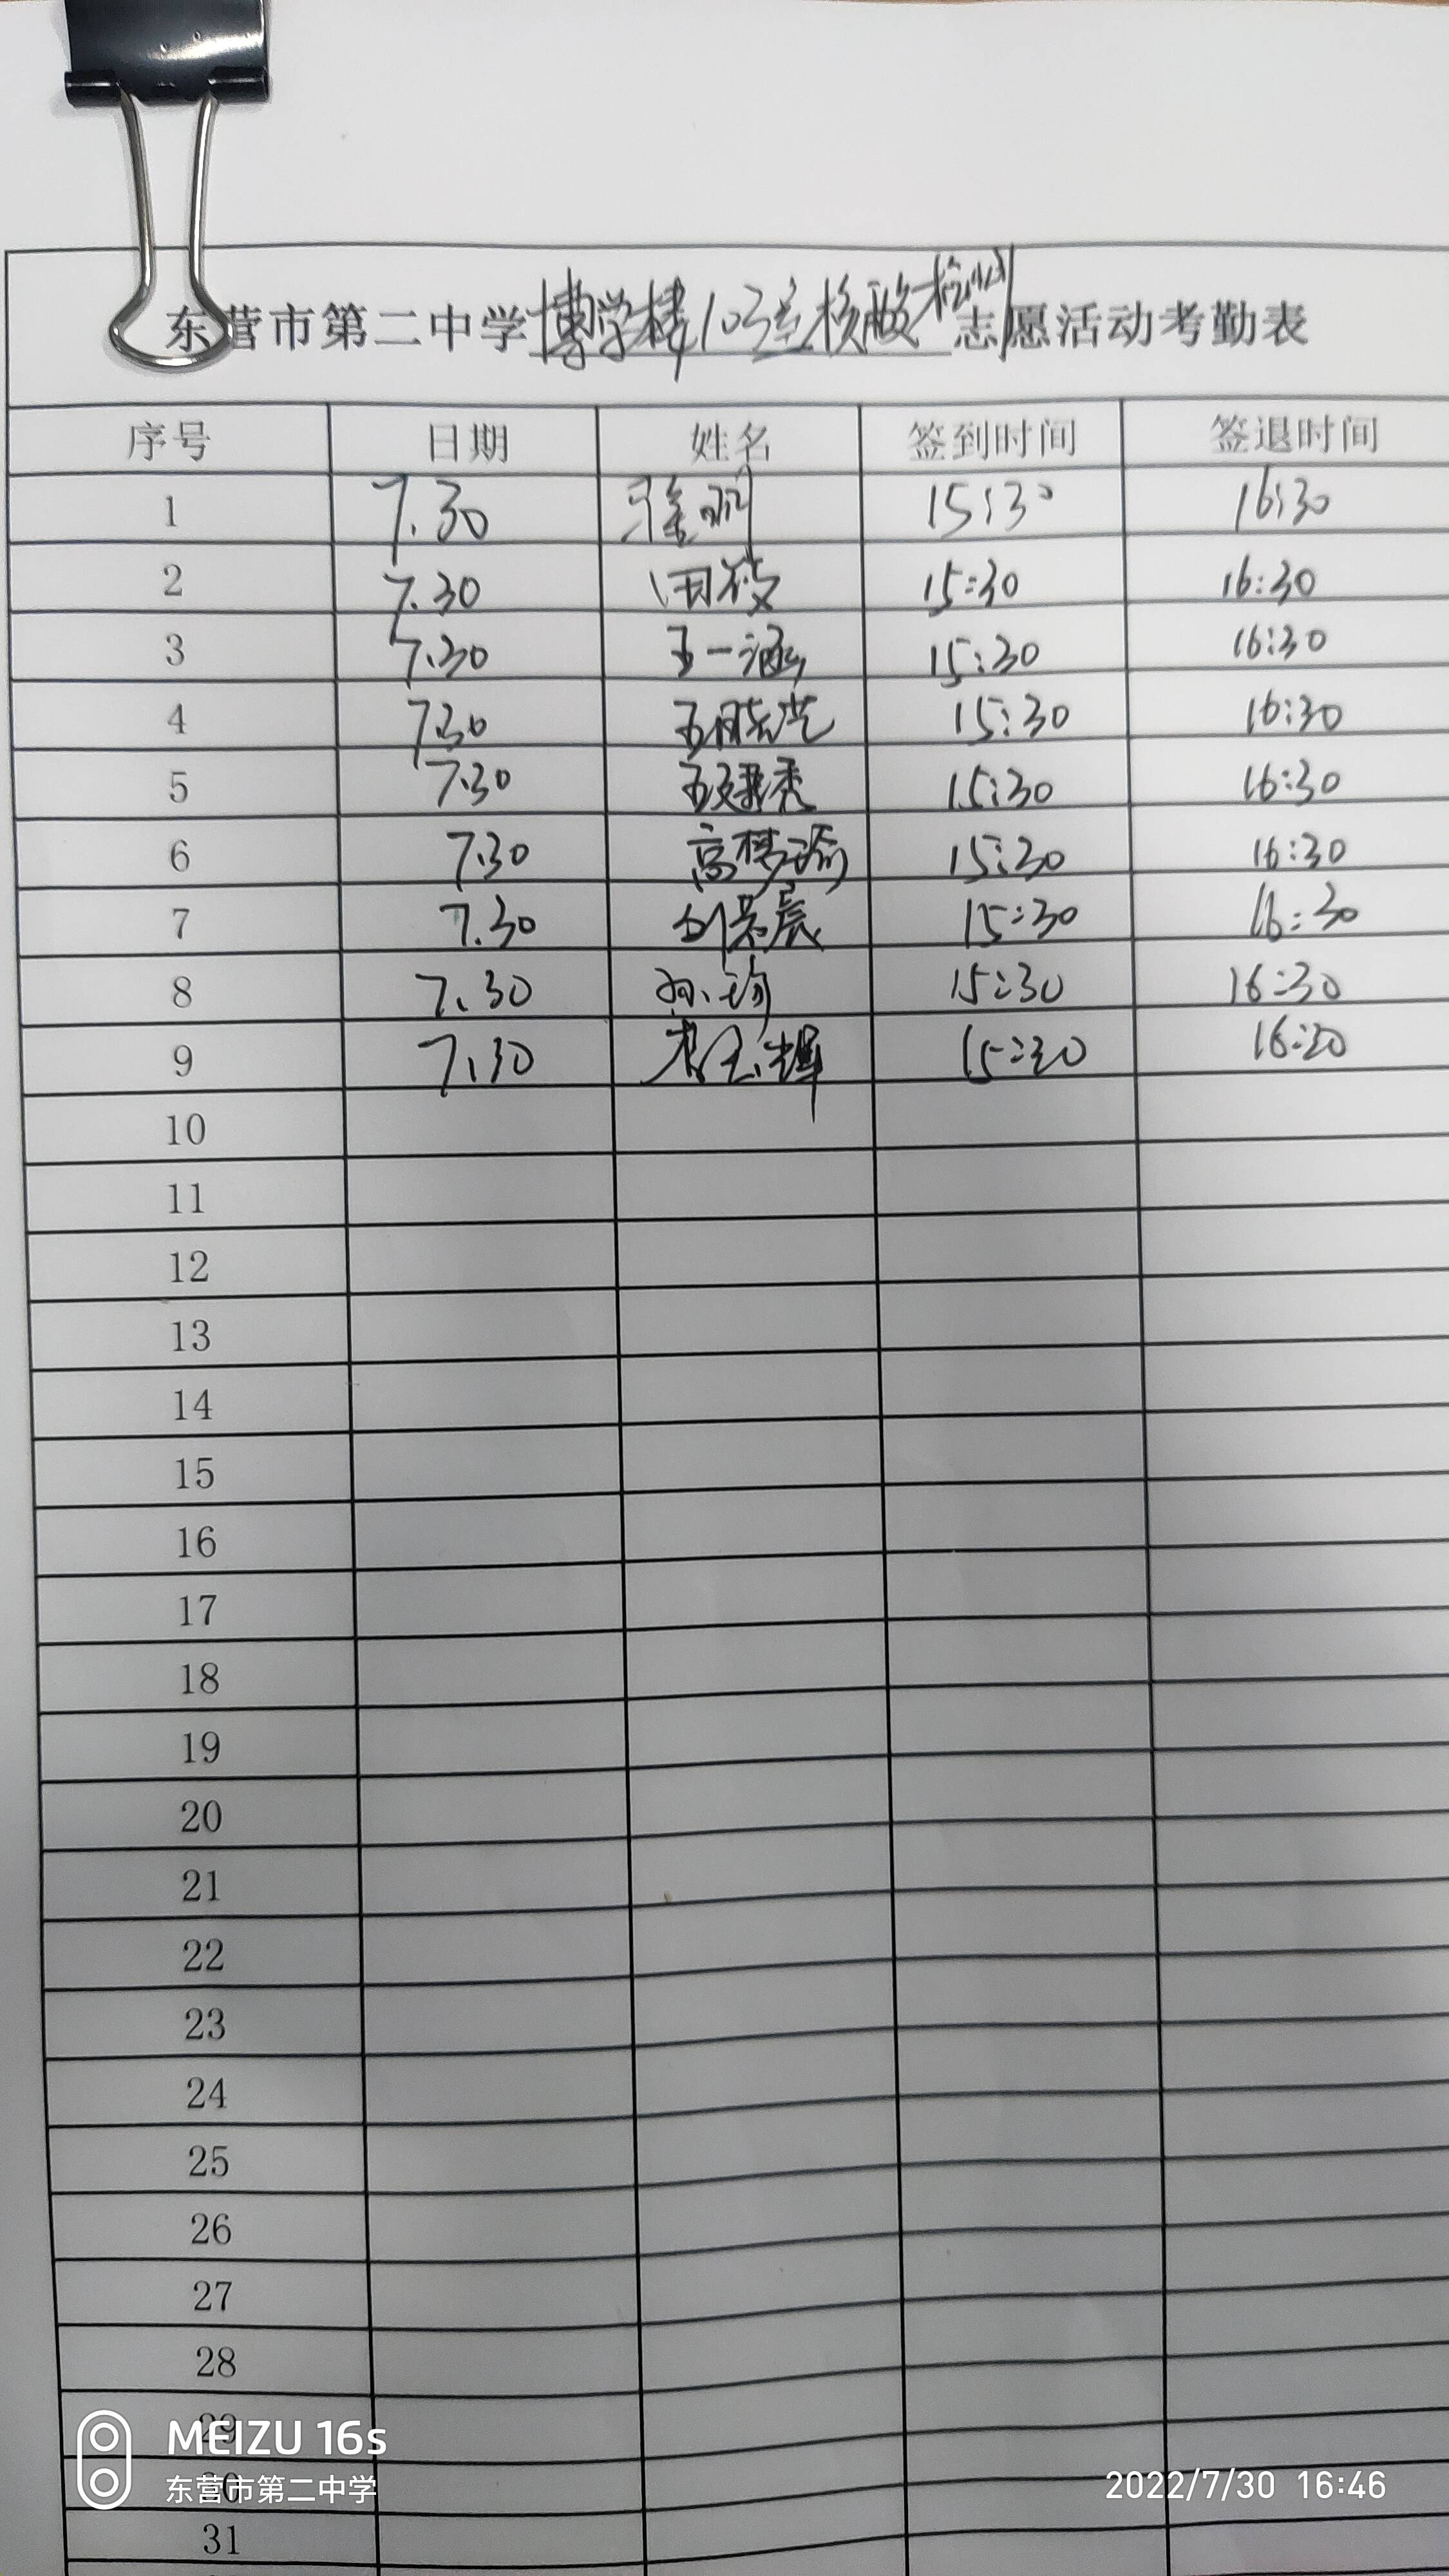 东营市第二中学博学楼103室核酸检测志愿活动考勤表
序号 日期 姓名 签到时间 签退时间
1 7.30 15:30 16:30
2 7.30 田筱 15:30 16:30
3 7.30 王一涵 15:30 16:30
4 7.30 15:30 16:30
5 7.30 秀 15:30 16:30
6 7.30 高梦瑜 15:30 16:30
7 7.30 刘景辰 15:30 16:30
8 7.30 孙 15:30 16:30
9 7.30 李玉辉 15:30 16:30
10
11
12
13
14
15
16
17
18
19
20
21
22
23
24
25
26
27
28
29
30
31
MEIZU 16s
东营市第二中学
2022/7/30 16:46